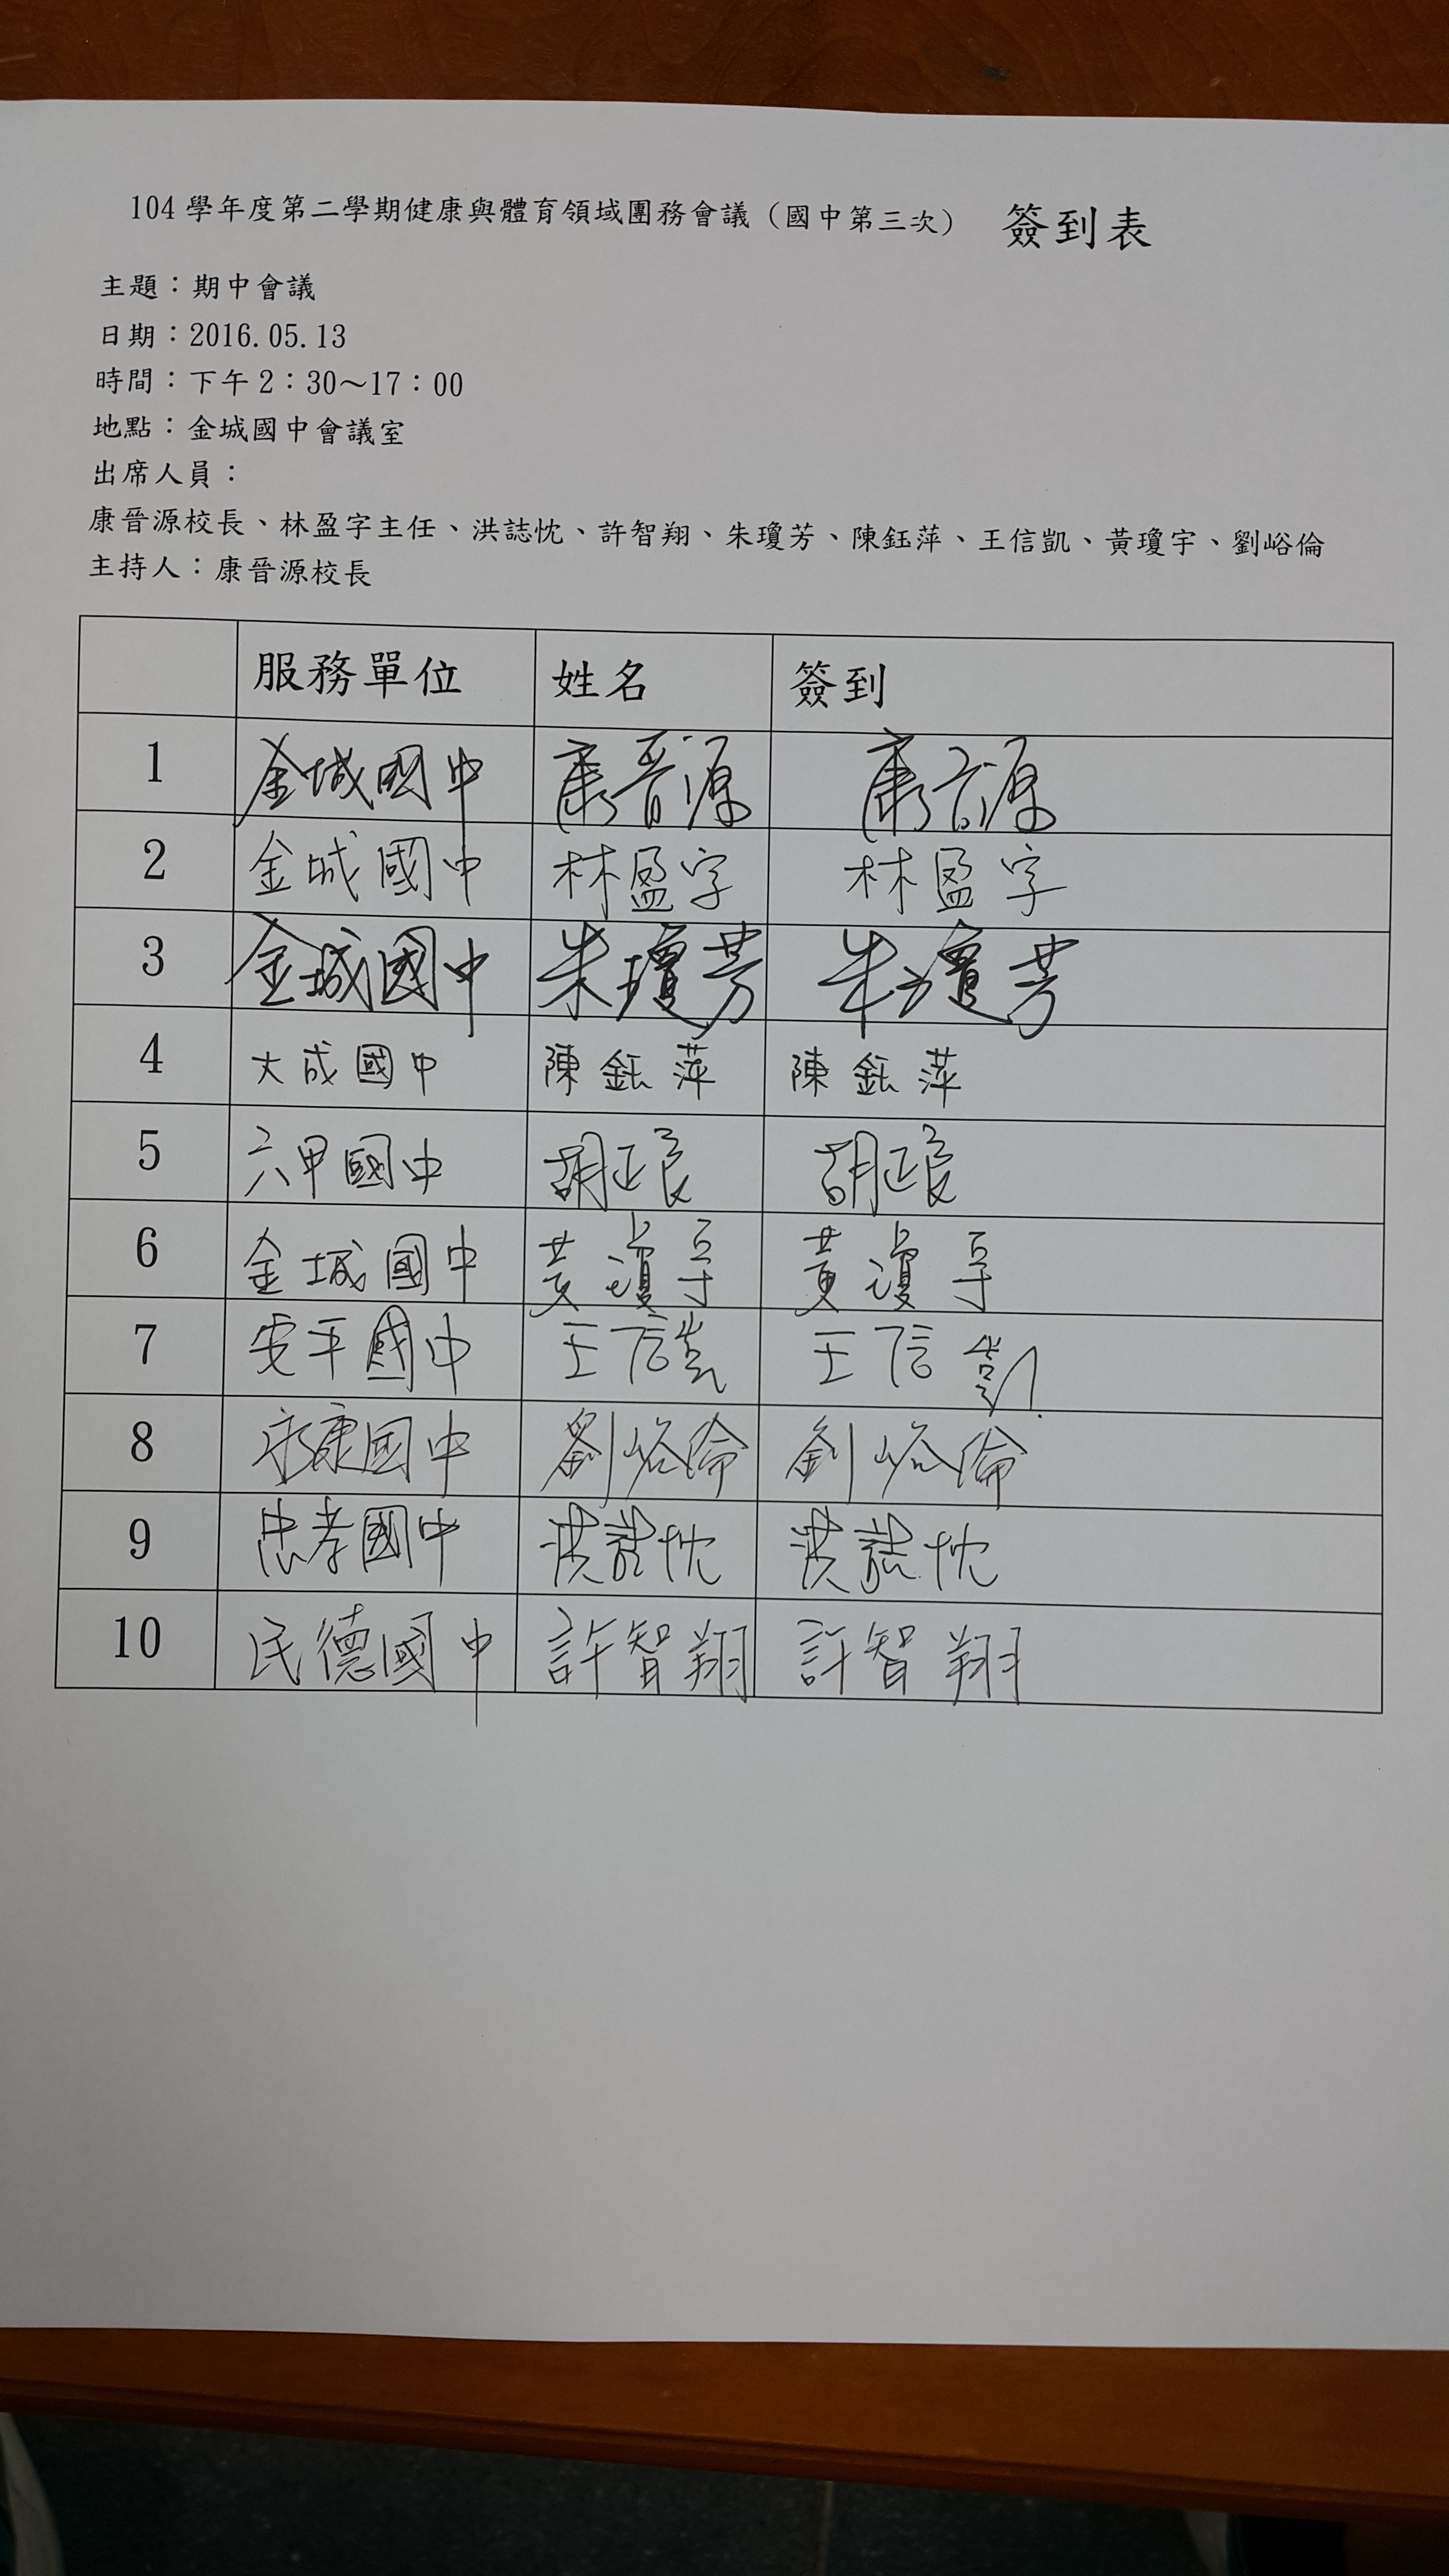 104 學年度第二學期健康與體育領域團務會議（國中第三次） 簽到表
主題：期中會議
日期：2016.05.13
時間：下午 2：30～17：00
地點：金城國中會議室
出席人員：
康晉源校長、林盈字主任、洪誌忱、許智翔、朱瓊芳、陳鈺萍、王信凱、黃瓊宇、劉峪倫
主持人：康晉源校長
服務單位 姓名 簽到
1 金城國中 康晉源 康晉源
2 金城國中 林盈字 林盈字
3 金城國中 朱瓊芳 朱瓊芳
4 大成國中 陳鈺萍 陳鈺萍
5 六甲國中 胡
6 金城國中 黃瓊宇 黃瓊宇
7 安平國中 王信凱 王信凱
8 永康國中 劉峪倫 劉峪倫
9 忠孝國中 洪誌忱 洪誌忱
10 民德國中 許智翔 許智翔